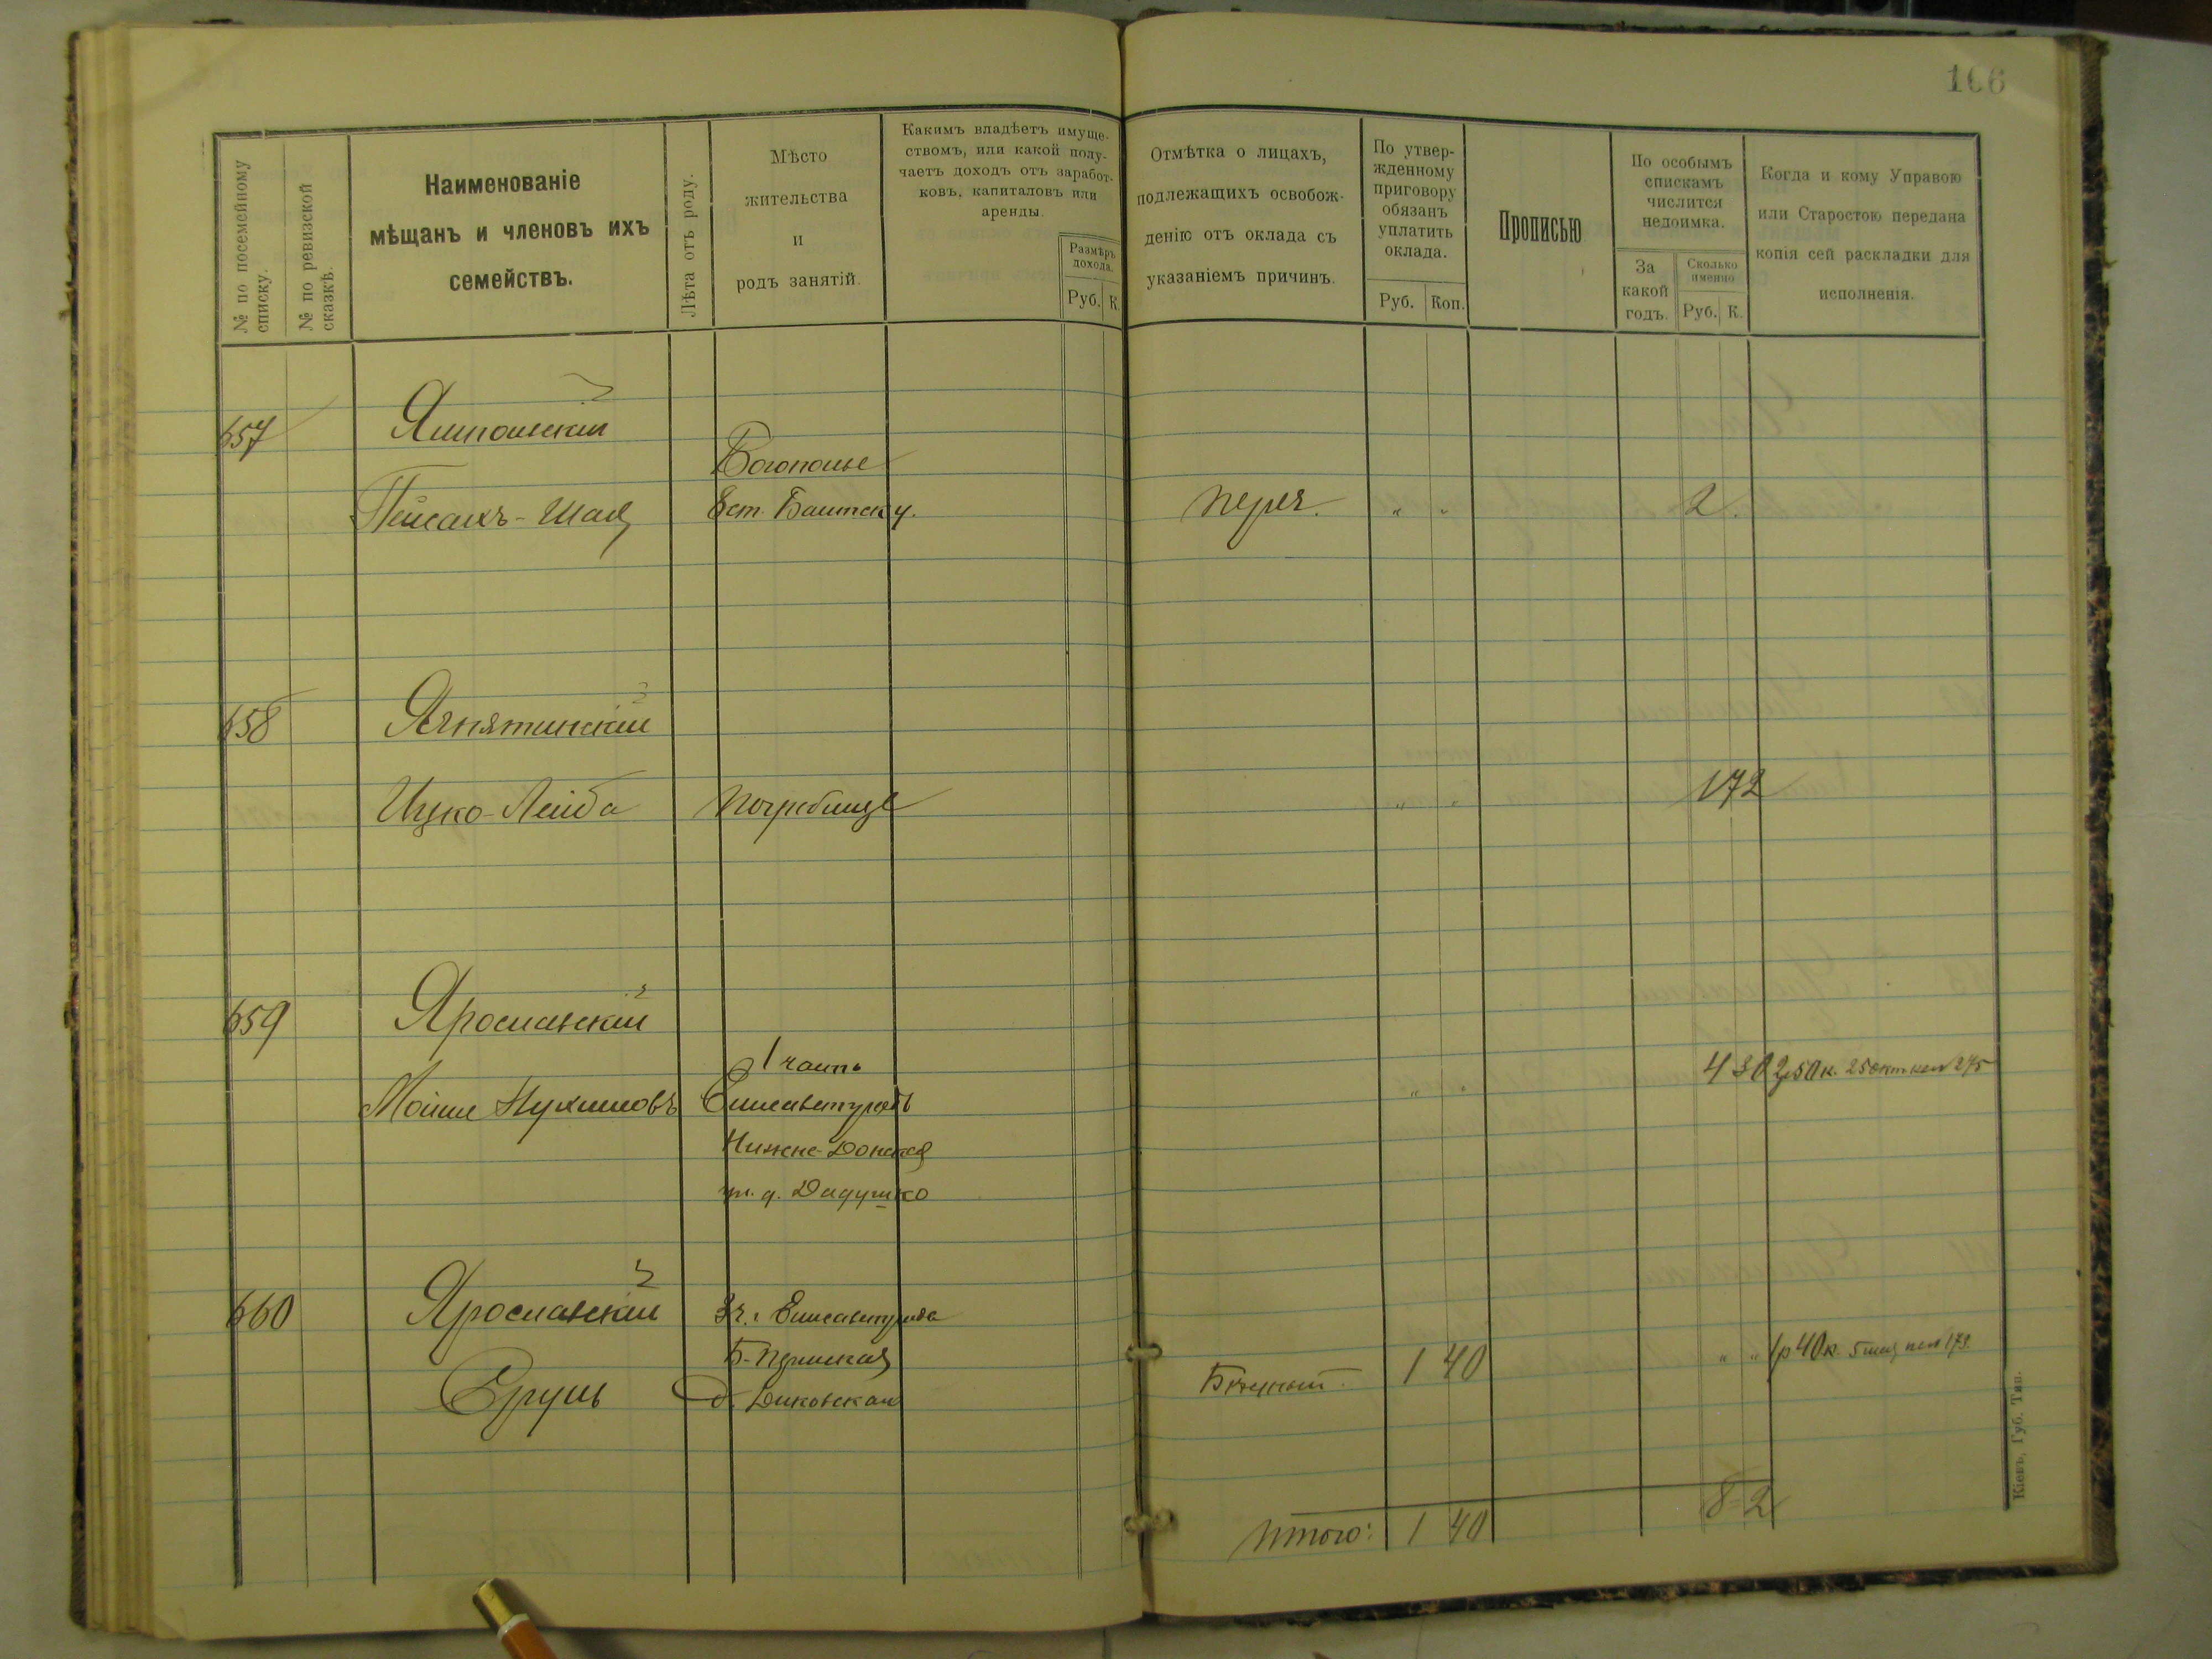 166
№ по посемейному списку.
№ по ревизской сказкѣ.
Наименованіе
мѣщанъ и членовъ ихъ
семействъ.
Лѣта отъ роду.
Мѣсто
жительства
и
родъ занятій.
Какимъ владѣетъ имуще-
ствомъ, или какой полу-
чаетъ доходъ отъ заработ-
ковъ, капиталовъ или
аренды.
Размѣръ
дохода.
Руб. К.
Отмѣтка о лицахъ,
подлежащихъ освобож-
денію отъ оклада съ
указаніемъ причинъ.
По утвер-
жденному
приговору
обязанъ
уплатить
оклада.
Руб. Коп.
Прописью
По особымъ
спискамъ
числится
недоимка.
За
какой
годъ.
Сколько
именно
Руб. К.
Когда и кому Управою
или Старостою передана
копія сей раскладки для
исполненія.
657
Ямпольскій
Богополье
Пейсахъ-Шая
" "
2
658
Ягнятинскій
Ицко-Лейба
Погребище
" "
1 72
659
Ярославскій
1 часть
Мойше Нухимовъ
Елисаветградъ
" "
4 30
2р 50 к. 25 окт 275
Нижне-Донская
ул. д.
660
Ярославскій
3 ч. Елисаветграда
Б-Пермская
Ерушъ
Бѣдный
1 40
" "
1р 40к. 173
Итого: 1 40
8 2
Кіевъ, Губ. Тип.